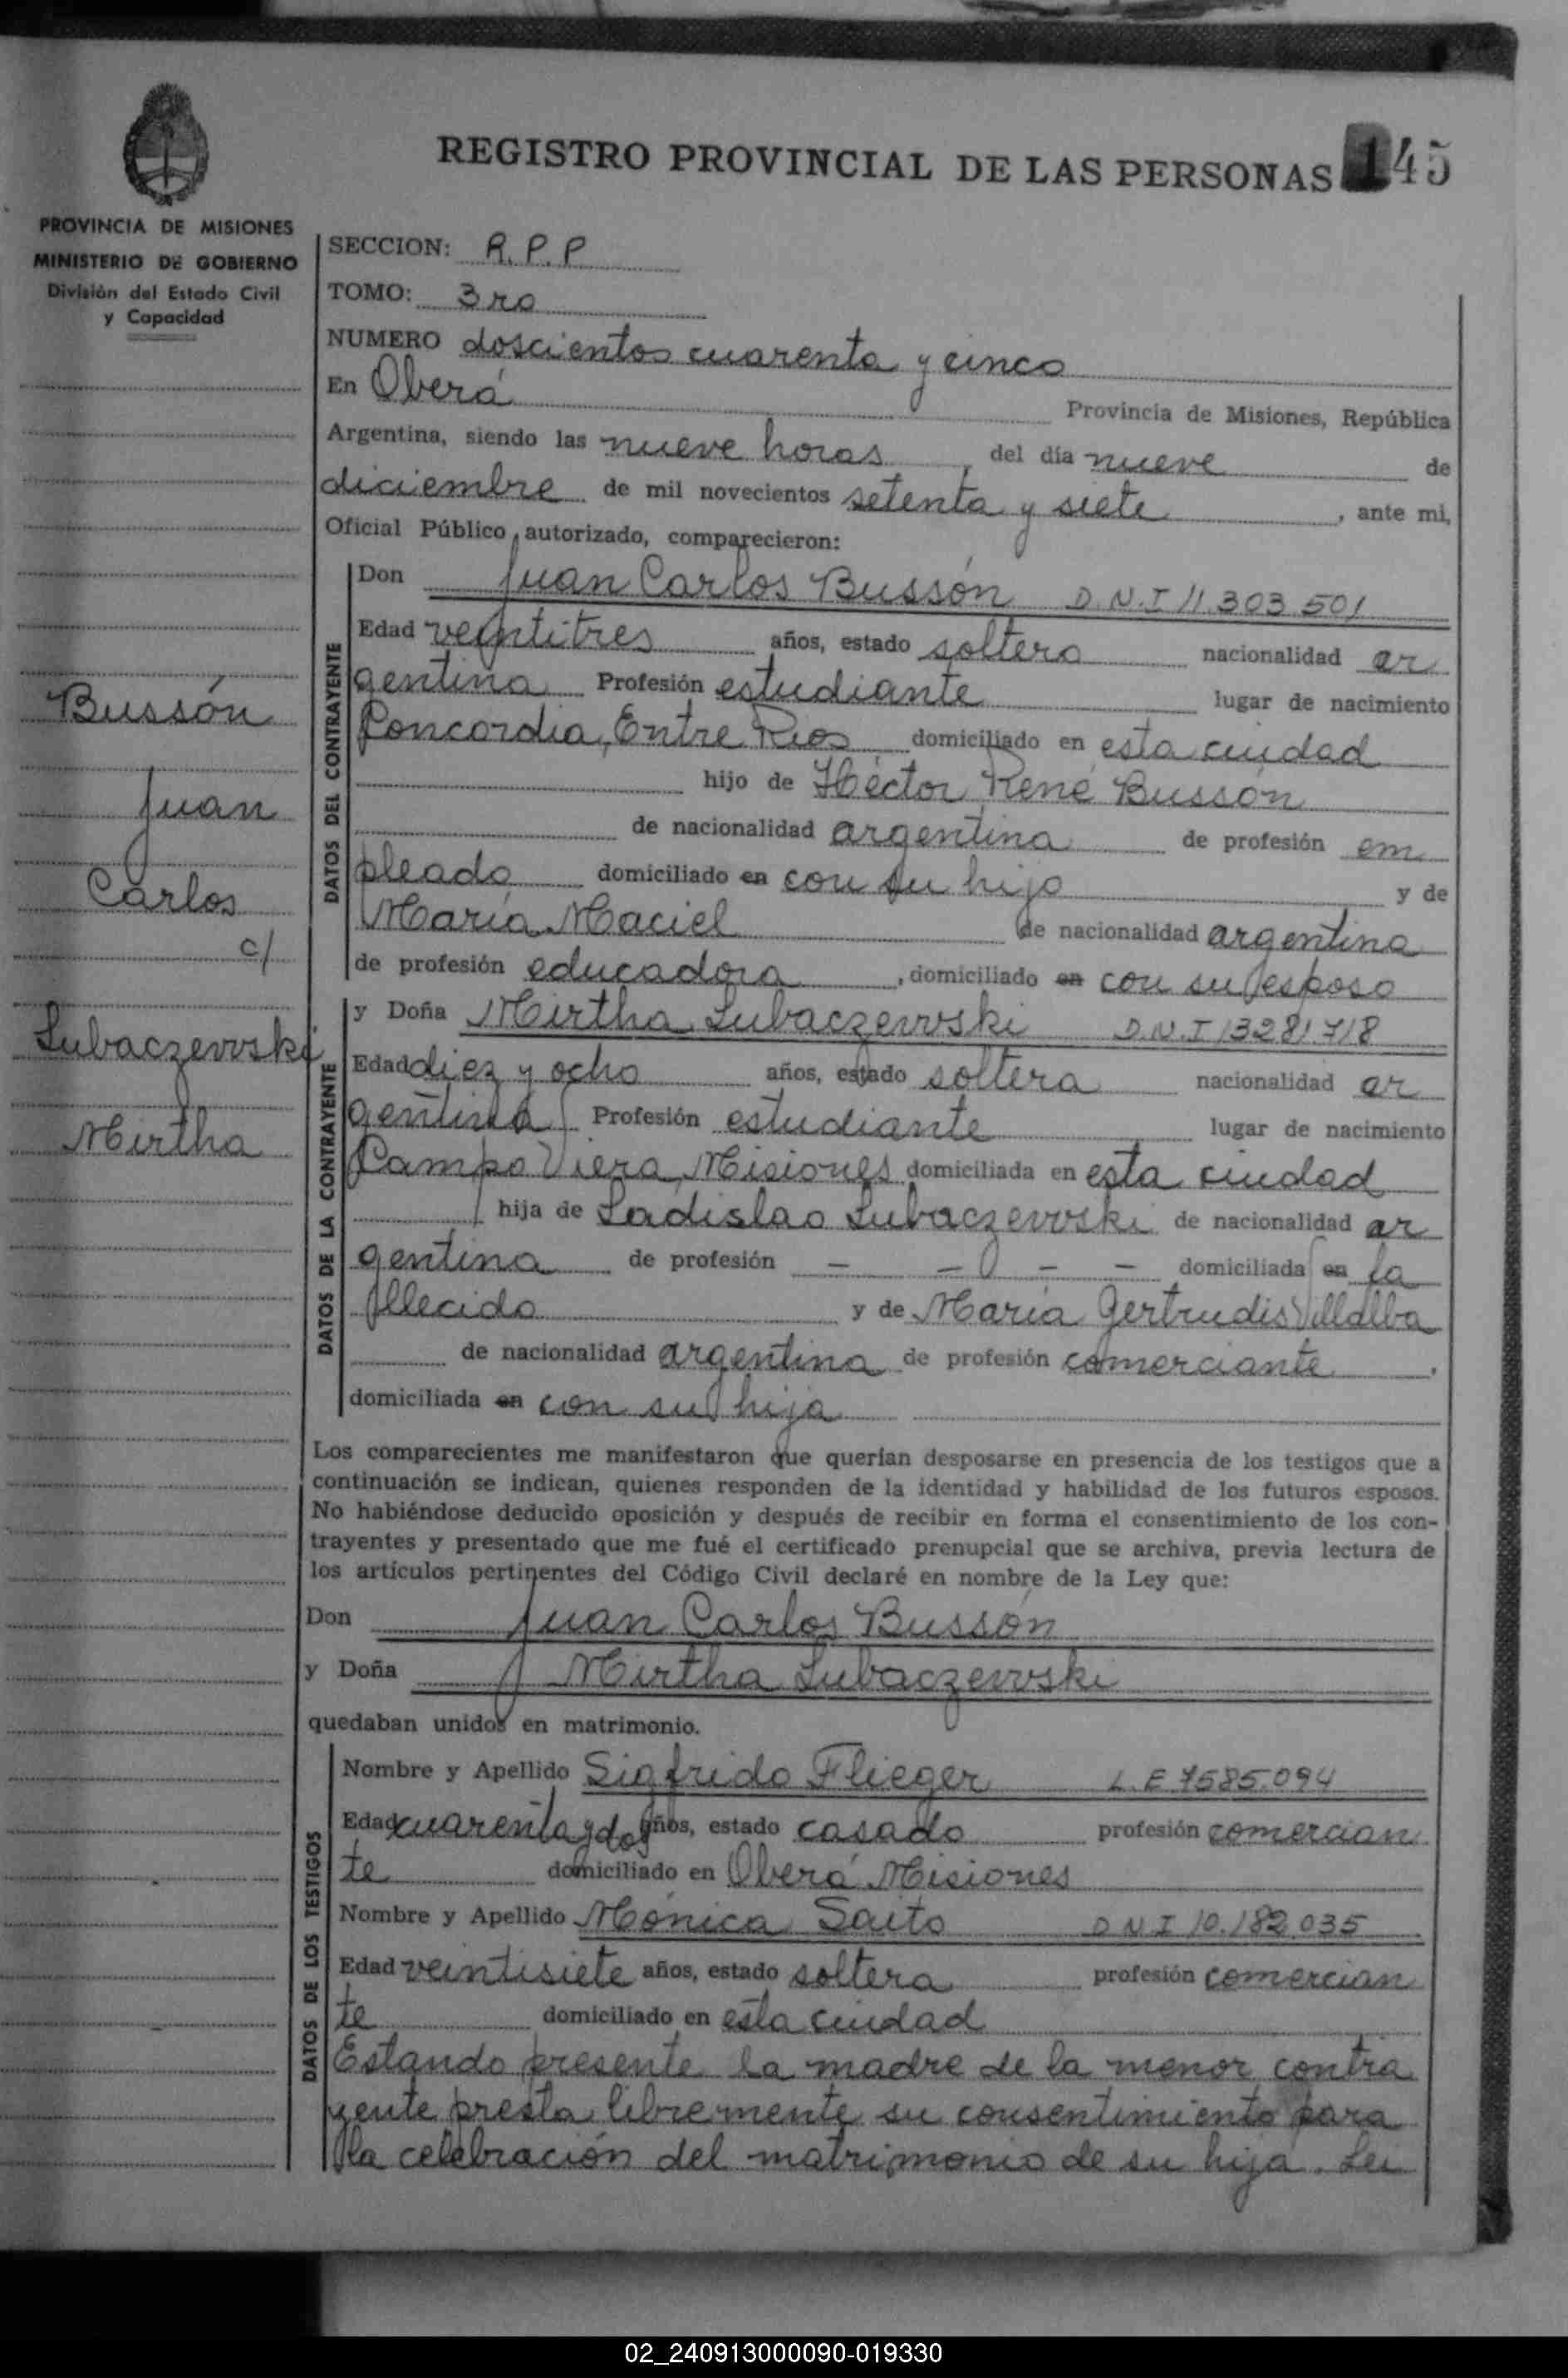 REGISTRO PROVINCIAL DE LAS PERSONAS 145
PROVINCIA DE MISIONES
MINISTERIO DE GOBIERNO
División del Estado Civil
y Capacidad
Bussón
Juan
Carlos
c/
Lubaczewski
Mirtha
SECCION: R.P.P
TOMO: 3ro
NUMERO doscientos cuarenta y cinco
En Oberá Provincia de Misiones, República
Argentina, siendo las nueve horas, del día nueve de
diciembre de mil novecientos setenta y siete, ante mi,
Oficial Público autorizado, comparecieron:
DATOS DEL CONTRAYENTE
Don Juan Carlos Bussón D.N.I 11 303 501
Edad veintitres años, estado soltero nacionalidad ar
gentina Profesión estudiante lugar de nacimiento
Concordia, Entre Rios domiciliado en esta ciudad
hijo de Héctor René Bussón
de nacionalidad argentina de profesión em
pleado domiciliado en con su hijo y de
María Maciel de nacionalidad argentina
de profesión educadora, domiciliado en con su esposo
DATOS DE LA CONTRAYENTE
y Doña Mirtha Lubaczewski D.N.I 13281.718
Edad diez y ocho años, estado soltera nacionalidad ar
gentina Profesión estudiante lugar de nacimiento
Campo Viera, Misiones domiciliada en esta ciudad
hija de Ladislao Lubaczewski de nacionalidad ar
gentina de profesión - - - - domiciliada en fa
llecido y de María Gertrudis Villalba
de nacionalidad argentina de profesión comerciante.
domiciliada en con su hija
Los comparecientes me manifestaron que querían desposarse en presencia de los testigos que a
continuación se indican, quienes responden de la identidad y habilidad de los futuros esposos.
No habiéndose deducido oposición y después de recibir en forma el consentimiento de los con-
trayentes y presentado que me fué el certificado prenupcial que se archiva, previa lectura de
los artículos pertinentes del Código Civil declaré en nombre de la Ley que:
Don Juan Carlos Bussón
y Doña Mirtha Lubaczewski
quedaban unidos en matrimonio.
DATOS DE LOS TESTIGOS
Nombre y Apellido Sigfrido Flieger L.E 7585.094
Edad cuarenta y dos años, estado casado profesión comercian
te domiciliado en Oberá Misiones
Nombre y Apellido Mónica Saito D N I 10.182.035
Edad veintisiete años, estado soltera profesión comercian
te domiciliado en esta ciudad
Estando presente la madre de la menor contra
yente presta libremente su consentimiento para
la celebración del matrimonio de su hija. Lei
02_240913000090-019330